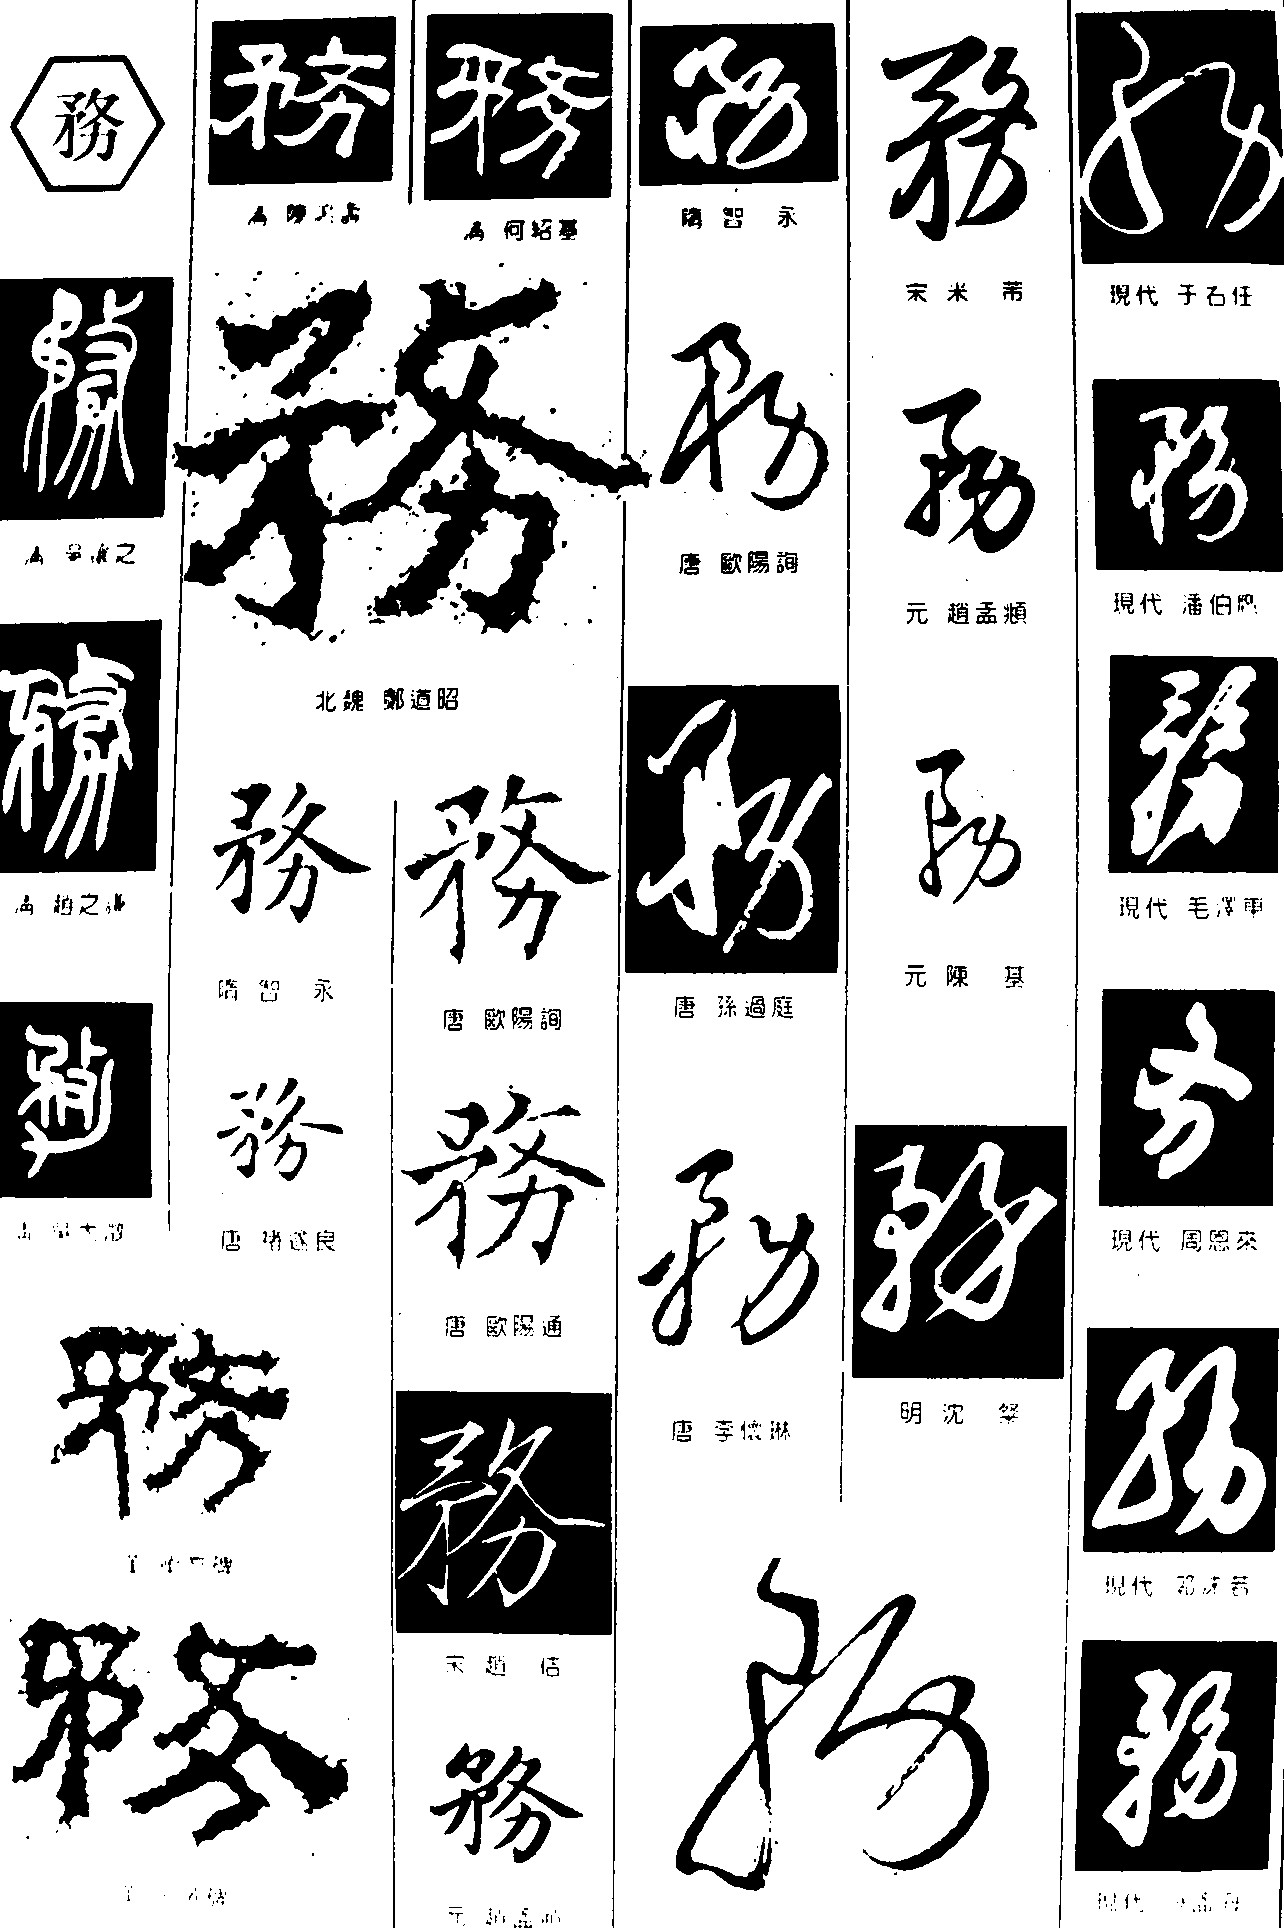 務
務
務
務
務
務
何紹基
隋 智 永
宋 米 芾
現代 于右任
務
務
務
務
務
之
唐 歐陽詢
元 趙孟頫
現代 潘伯鷹
務
務
務
務
北魏 鄭道昭
趙之謙
現代 毛澤東
務
務
務
務
隋 智 永
唐 歐陽詢
唐 孫過庭
元 陳 基
務
務
務
務
務
唐 褚遂良
唐 歐陽通
現代 周恩來
務
務
務
唐 李懷琳
明 沈 粲
現代 郭沫若
務
務
宋 趙 佶
務
務
元 趙孟頫
現代